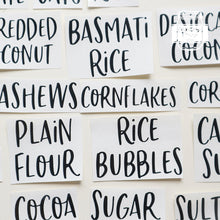 REDDED BASMATI DESICCA
CONUT RICE COCO
ASHEWS CORNFLAKES COR
PLAIN RICE CA
FLOUR BUBBLES SU
COCOA SUGAR SULT